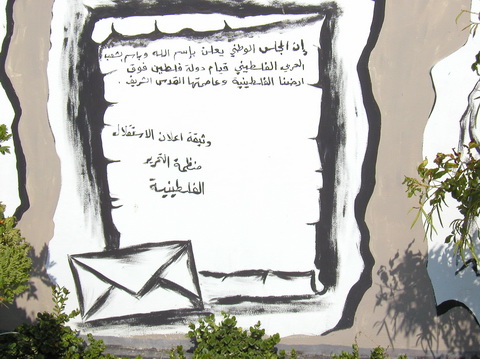 إن المجلس الوطني يعلن بإسم الله وباسم شعبنا
العربي الفلسطيني قيام دولة فلسطين فوق
ارضنا الفلسطينية وعاصمتها القدس الشريف .
وثيقة اعلان الاستقلال
منظمة التحرير
الفلسطينية